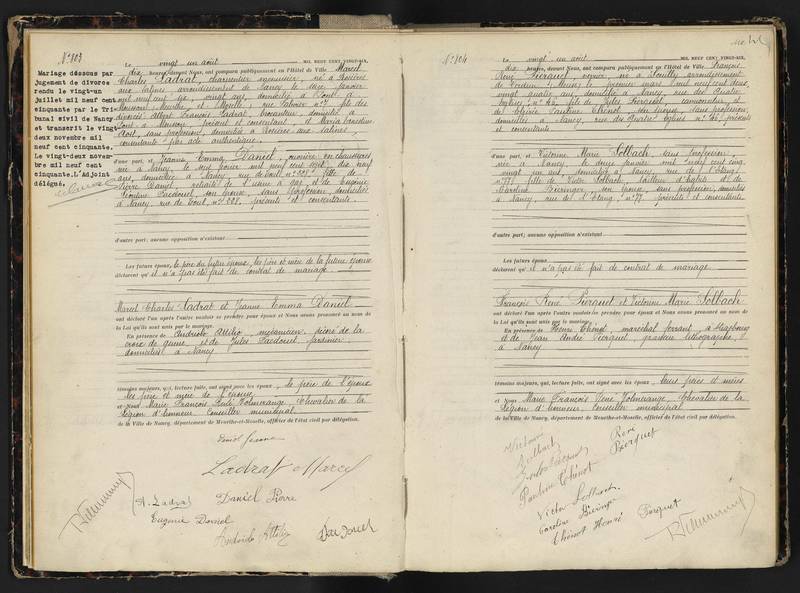 N° 803
Mariage dissous par
jugement de divorce
rendu le vingt-un
juillet mil neuf cent
cinquante par le Tri
bunal civil de Nancy
et transcrit le vingt
deux novembre mil
neuf cent cinquante.
Le vingt-deux novem-
bre mil neuf cent
cinquante. L'Adjoint
délégué,
Le vingt un août MIL NEUF CENT VINGT-SIX,
dix heures, devant Nous, ont comparu publiquement en l'Hôtel de Ville Marcel
Charles Ladrat, charpentier menuisier, né à Rosières
aux Salines arrondissement de Nancy le janvier
mil neuf cent six, vingt ans, domicilié à Pont à
Mousson Meurthe et Moselle, rue n° 7 fils des
divorcés Albert François Ladrat, brocanteur, domicilié à
Pont à Mousson, présent et consentant, et Maria
sans profession, domiciliée à Rosières aux Salines,
consentante par acte authentique.
d'une part, et Jeanne Emma Daniel, ouvrière en chaussures
née à Nancy, le février mil neuf cent sept, dix neuf
ans, domiciliée à Nancy rue de Toul, n° 228, fille de
Pierre Daniel, retraité de l'usine à gaz et de Eugénie
Jacdouel, son épouse, sans profession, domiciliés
à Nancy rue de Toul, n° 228, présents et consentants.
d'autre part; aucune opposition n'existant
Les futurs époux, le père du futur époux, les père et mère de la future épouse
déclarent qu'il n'a pas été fait de contrat de mariage
Marcel Charles Ladrat et Jeanne Emma Daniel
ont déclaré l'un après l'autre vouloir se prendre pour époux et Nous avons prononcé au nom de
la Loi qu'ils sont unis par le mariage.
En présence de Attilio, mécanicien, décoré de la
croix de guerre, et de Jules Jacdouel, jardinier,
domiciliés à Nancy
témoins majeurs, qui, lecture faite, ont signé avec les époux, le père de l'époux
les père et mère de l'épouse
et Nous Marie François René Volmerange, Chevalier de la
Légion d'honneur, Conseiller municipal
de la Ville de Nancy, département de Meurthe-et-Moselle, officier de l'état civil par délégation.
Daniel Jeanne
Ladrat Marcel
A. Ladrat
Daniel Pierre
Eugénie Daniel
N° 804
Le vingt un août MIL NEUF CENT VINGT-SIX,
dix heures, devant Nous, ont comparu publiquement en l'Hôtel de Ville François
René Pierquet, vernier, né à arrondissement
de Verdun Meuse, le premier mars mil neuf cent deux,
vingt quatre ans, domicilié à Nancy rue des Quatre
Eglises n° fils de Jules Pierquet, camionneur, et
de Pauline Chénot, son épouse, sans profession,
domiciliés à Nancy, rue des Quatre Eglises n° présents
et consentants
d'une part, et Victorine Marie Solbach sans profession,
née à Nancy, le janvier mil neuf cent cinq,
vingt un ans, domiciliée à Nancy, rue de l'Etang
n° 77, fille de Victor Solbach, tailleur d'habits et de
Caroline son épouse, sans profession, domiciliés
à Nancy, rue de l'Etang, n° 77, présents et consentants
d'autre part; aucune opposition n'existant
Les futurs époux
déclarent qu'il n'a pas été fait de contrat de mariage
François René Pierquet et Victorine Marie Solbach
ont déclaré l'un après l'autre vouloir se prendre pour époux et Nous avons prononcé au nom de
la Loi qu'ils sont unis par le mariage.
En présence de Henri Chénot, maréchal ferrant, à Strasbourg
et de Jean André Pierquet, graveur lithographe,
à Nancy
témoins majeurs, qui, lecture faite, ont signé avec les époux, leurs pères et mères
et Nous Marie François René Volmerange, Chevalier de la
Légion d'honneur, Conseiller municipal
de la Ville de Nancy, département de Meurthe-et-Moselle, officier de l'état civil par délégation.
René
Pierquet
Pauline Chénot
Chénot Henri